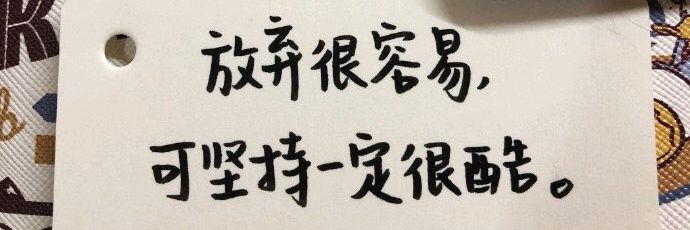 放弃很容易,
可坚持一定很酷。